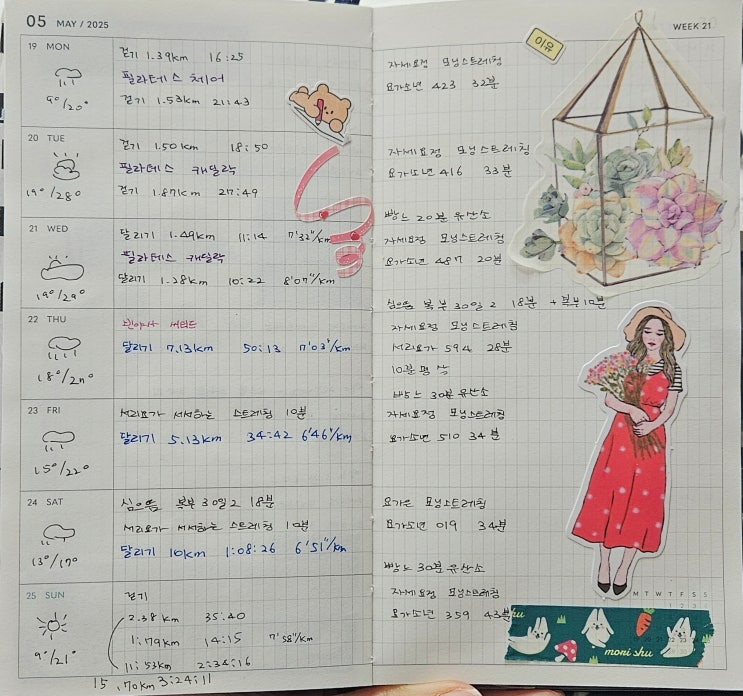 05 MAY / 2025
19 MON
걷기 1.39km 16:25
필라테스 체어
9°/20°
걷기 1.53km 21:43
20 TUE
걷기 1.50km 18:50
필라테스 캐딜락
19°/28°
걷기 1.87km 27:49
21 WED
달리기 1.49km 11:14 7'32"/km
필라테스 캐딜락
19°/29°
달리기 1.28km 10:22 8'07"/km
22 THU
달리기 7.13km 50:13 7'03"/km
23 FRI
서리요가 서서하는 스트레칭 10분
달리기 5.13km 34:42 6'46"/km
15°/22°
24 SAT
심으뜸 복부 30일2 18분
서리요가 서서하는 스트레칭 10분
달리기 10km 1:08:26 6'51"/km
13°/17°
25 SUN
걷기
2.38km 35:40
1.79km 14:15 7'58"/km
9°/21°
11.53km 2:34:16
15.70km 3:24:11
WEEK 21
이유
자세요정 모닝스트레칭
요가소년 423 32분
자세요정 모닝스트레칭
요가소년 416 33분
빵느 20분 유산소
자세요정 모닝스트레칭
요가소년 487 20분
심으뜸 복부 30일2 18분 +복부 10분
자세요정 모닝스트레칭
서리요가 594 28분
10분 명상
빵느 30분 유산소
자세요정 모닝스트레칭
요가소년 510 34분
요가은 모닝스트레칭
요가소년 019 34분
빵느 30분 유산소
자세요정 모닝스트레칭
요가소년 359 43분
M T W T F S S
mori shu